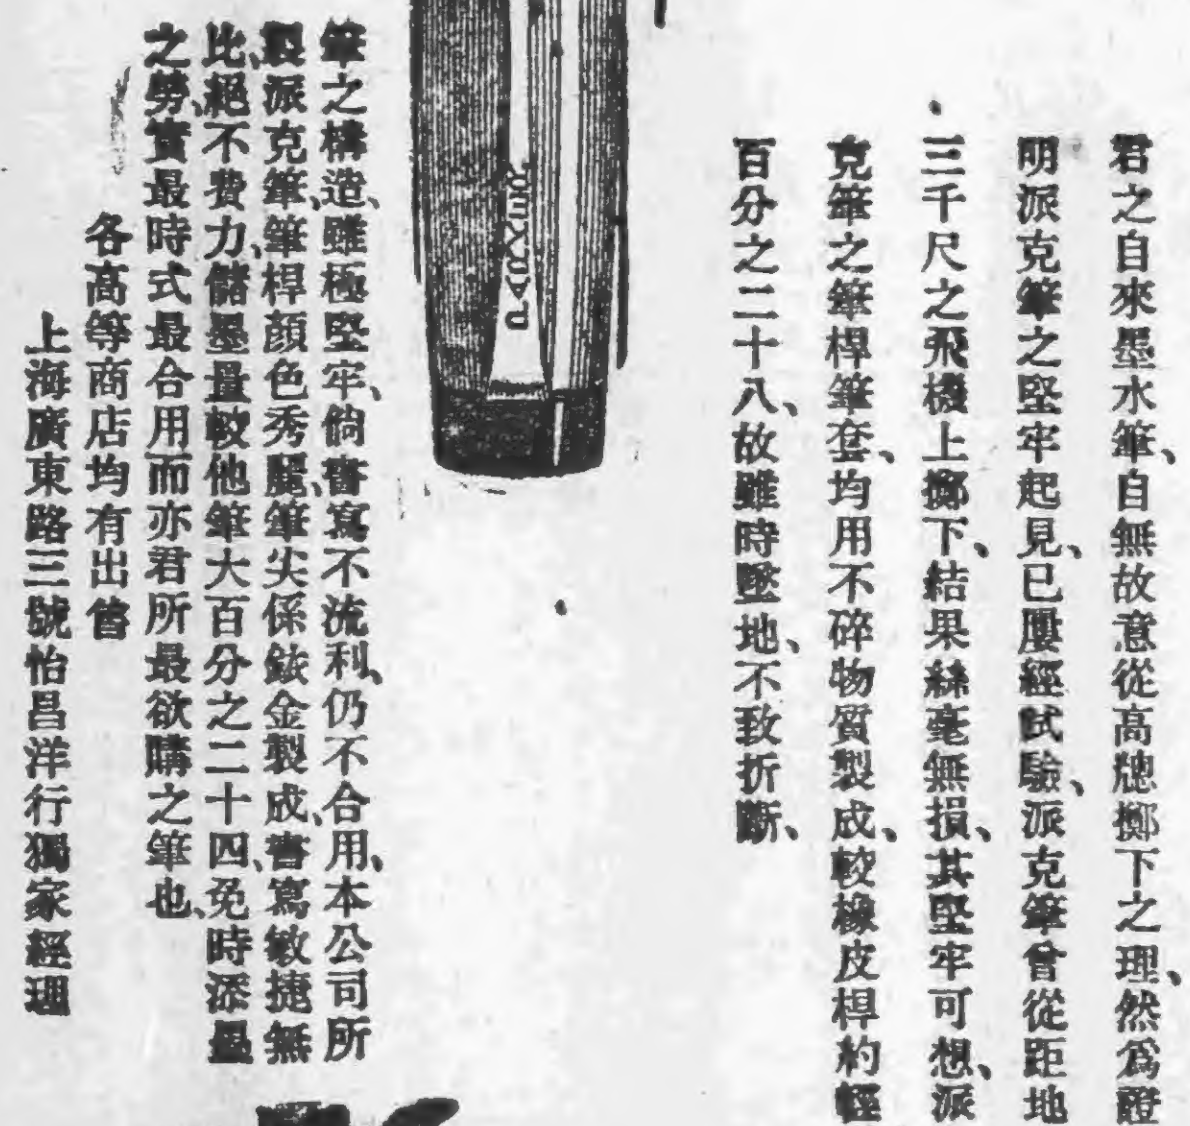 君之自來墨水筆、自無故意從高牕擲下之理、然爲證
明派克筆之堅牢起見、已屢經試驗、派克筆曾從距地
三千尺之飛機上擲下、結果絲毫無損、其堅牢可想、派
克筆之筆桿筆套、均用不碎物質製成、較橡皮桿約輕
百分之二十八、故雖時墜地、不致折斷、
筆之構造、雖極堅牢、倘書寫不流利、仍不合用、本公司所
製派克筆、筆桿顏色秀麗、筆尖係銥金製成、書寫敏捷無
比、絕不費力、儲墨量較他筆大百分之二十四、免時添墨
之勞、實最時式最合用而亦君所最欲購之筆也、
各高等商店均有出售
上海廣東路三號怡昌洋行獨家經理